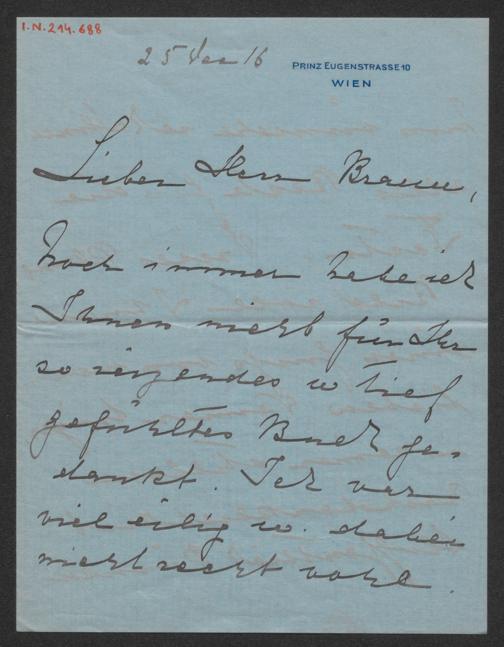 I.N. 214.688
25 Dec 16
PRINZ EUGENSTRASSE 10
WIEN
Lieber Herr Braun,
Noch immer habe ich
Ihnen nicht für Ihr
so reizendes u tief
gefühltes Buch ge-
dankt. Ich war
viel eilig u. dabei
nicht recht wohl.